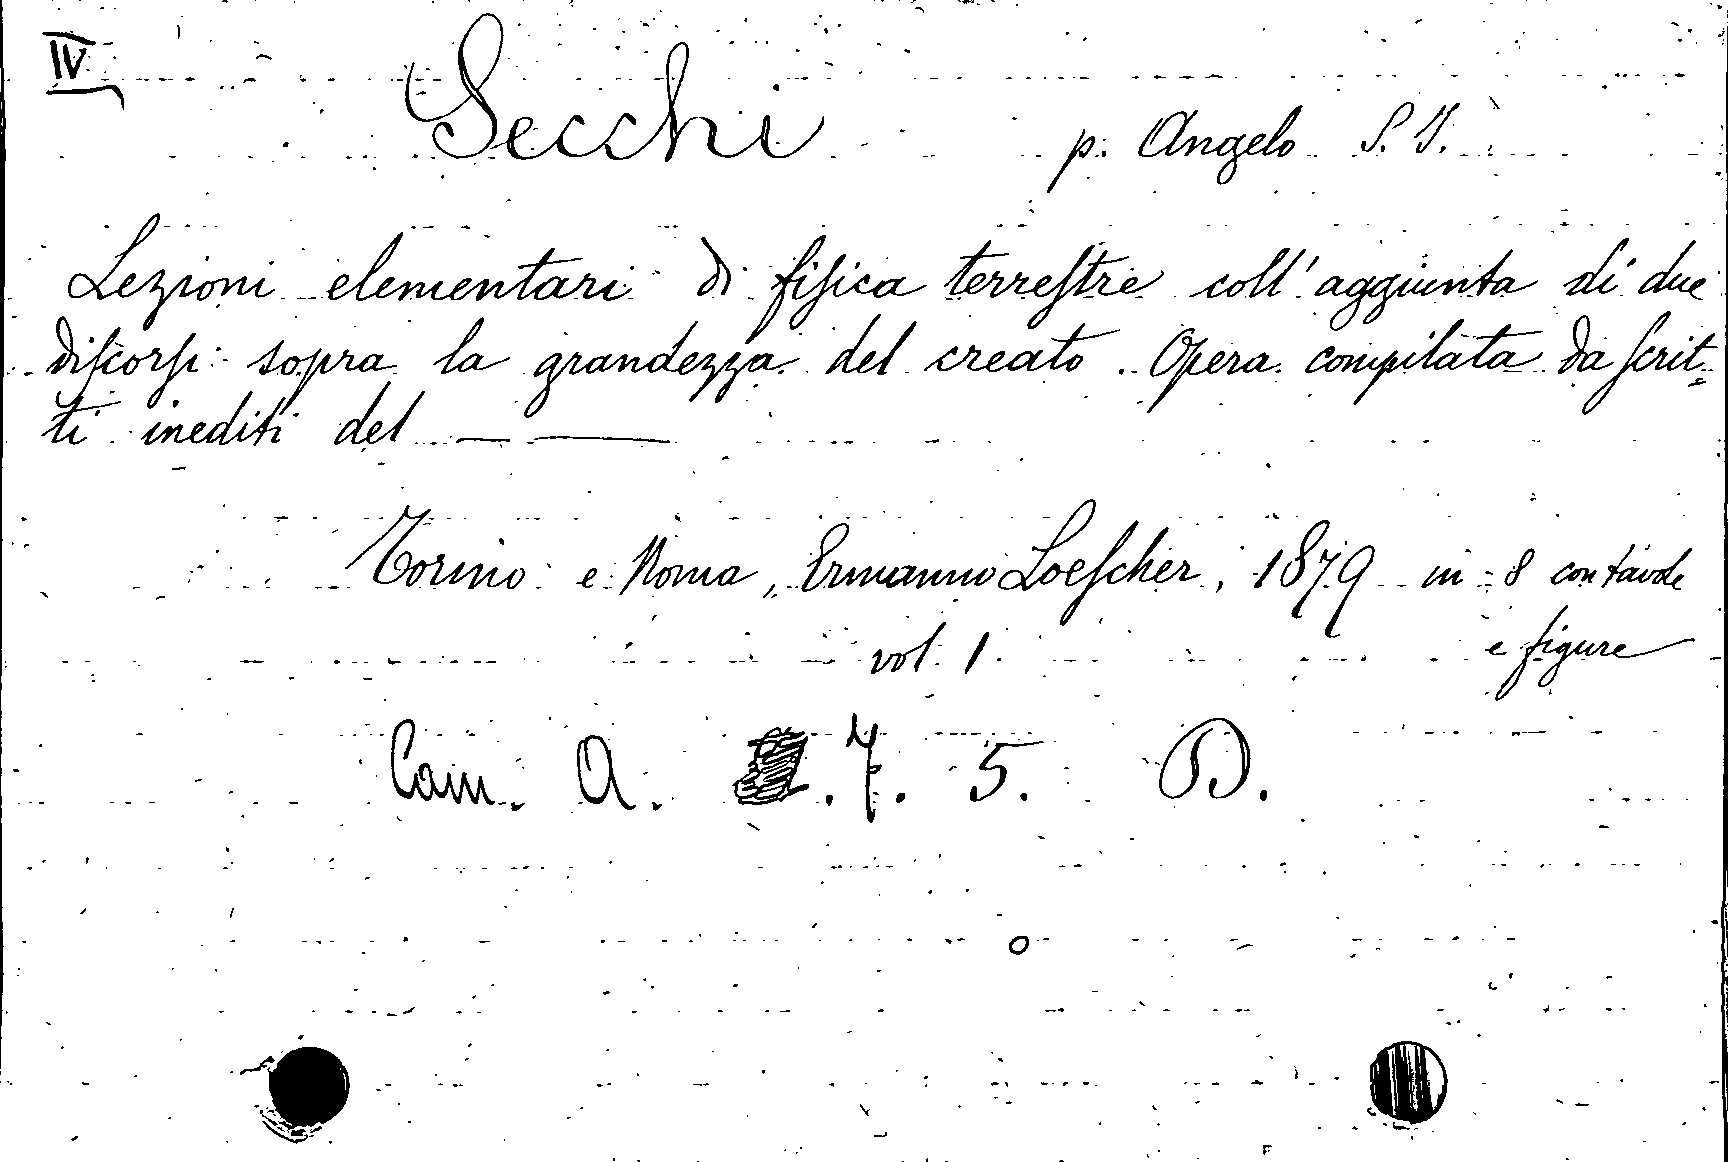 IV
Secchi p. Angelo S. J.
Lezioni elementari di fisica terrestre coll'aggiunta di due
discorsi sopra la grandezza del creato. Opera compilata da scrit-
ti inediti del — ——
Torino e Roma, Ermanno Loescher, 1879 in 8 con tavole
vol. 1 e figure
Cam. A. 7. 5. D.